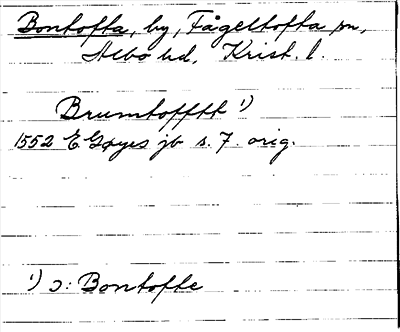 Bontofta, by, Fågeltofta sn,
Albo hd, Krist. l.
Brumtofftt ¹)
1552 E Gøyes jb s. 7. orig.
¹) ɔ: Bontofte